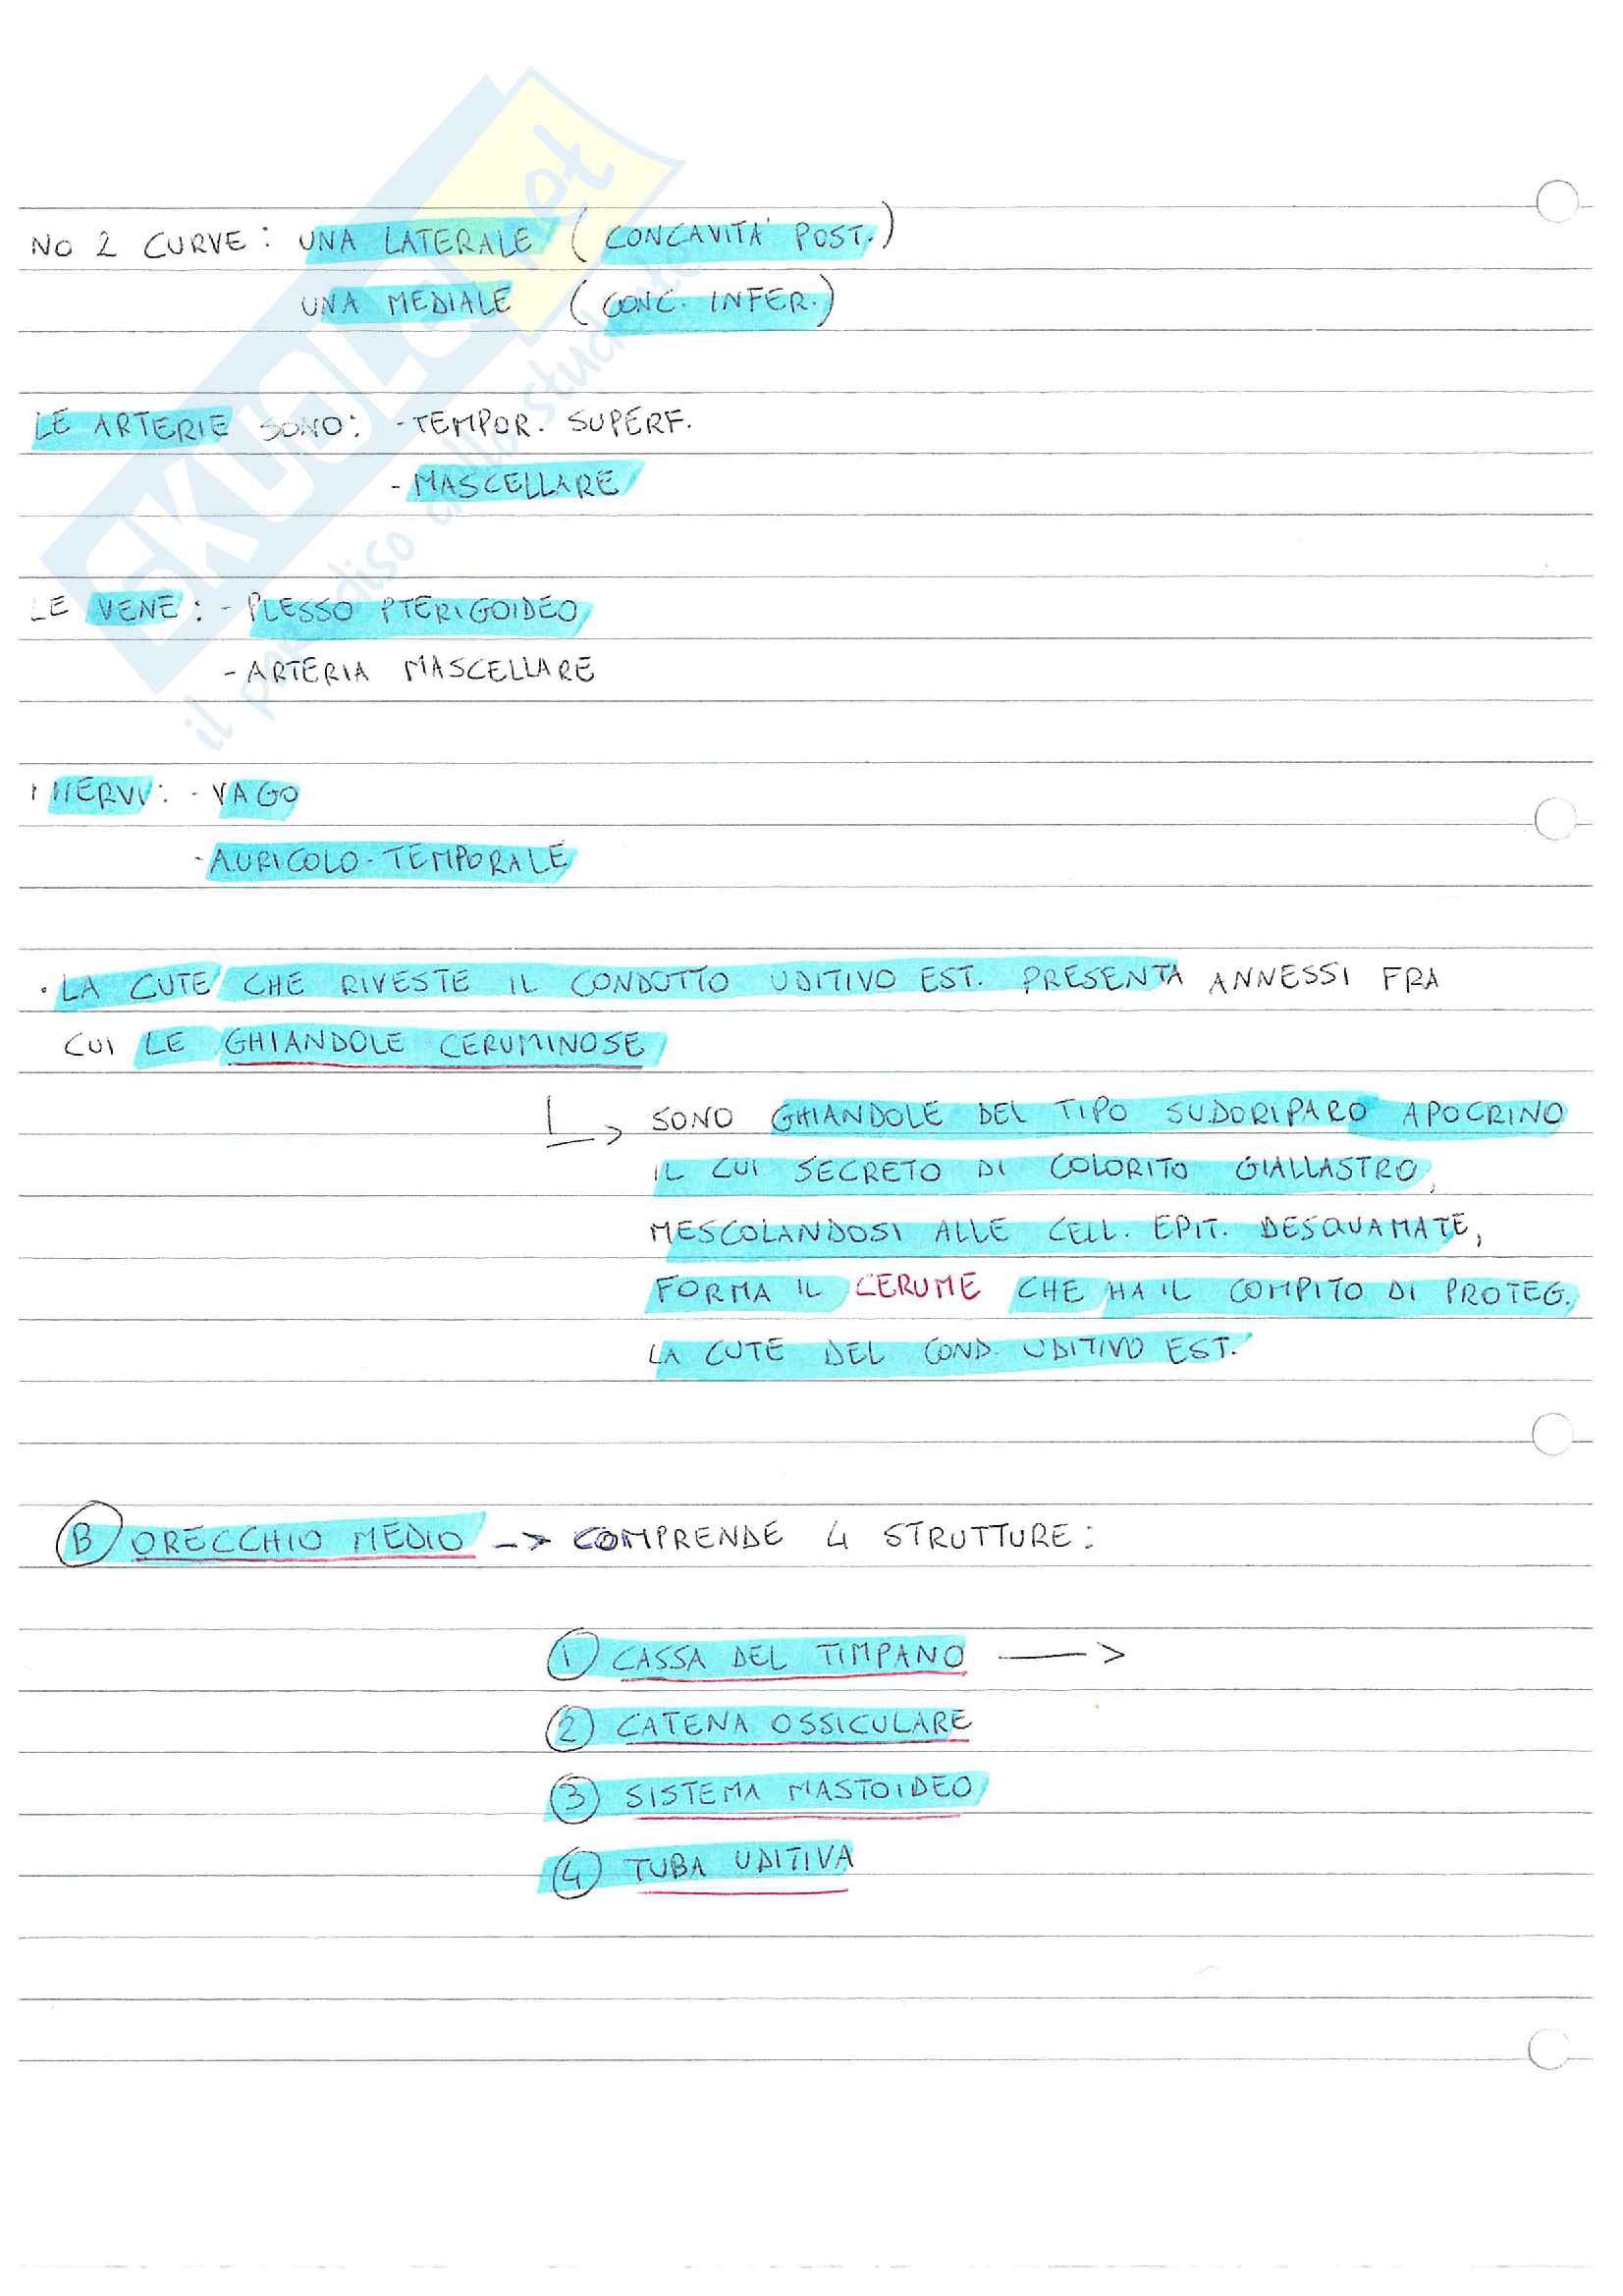 NO 2 CURVE: UNA LATERALE (CONCAVITÀ POST.)
UNA MEDIALE (CONC. INFER.)
LE ARTERIE SONO: - TEMPOR. SUPERF.
- MASCELLARE
LE VENE: - PLESSO PTERIGOIDEO
- ARTERIA MASCELLARE
I NERVI: - VAGO
- AURICOLO-TEMPORALE
• LA CUTE CHE RIVESTE IL CONDOTTO UDITIVO EST. PRESENTA ANNESSI FRA
CUI LE GHIANDOLE CERUMINOSE
↳ SONO GHIANDOLE DEL TIPO SUDORIPARO APOCRINO
IL CUI SECRETO DI COLORITO GIALLASTRO,
MESCOLANDOSI ALLE CELL. EPIT. DESQUAMATE,
FORMA IL CERUME CHE HA IL COMPITO DI PROTEG.
LA CUTE DEL COND. UDITIVO EST.
B ORECCHIO MEDIO -> COMPRENDE 4 STRUTTURE:
1 CASSA DEL TIMPANO —>
2 CATENA OSSICULARE
3 SISTEMA MASTOIDEO
4 TUBA UDITIVA
SKUOLA.net
il paradiso dello studente